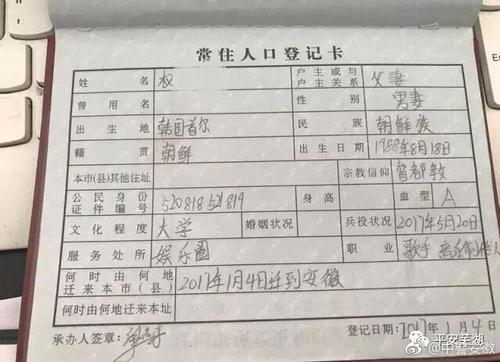 常住人口登记卡
姓名 权 户主或与户主关系 父妻
曾用名 性别 男妻
出生地 韩国首尔 民族 朝鲜族
籍贯 朝鲜 出生日期 1988年8月18日
本市(县)其他住址 宗教信仰 督都教
公民身份证件编号 520818521819 身高 血型 A
文化程度 大学 婚姻状况 兵役状况 2017年5月20日
服务处所 娱乐圈 职业 歌手 音乐制作人
何时由何地迁来本市(县) 2017年1月4日迁到安徽
何时由何地迁来本址
承办人签章: 登记日期:2017年1月4日
平安芜湖